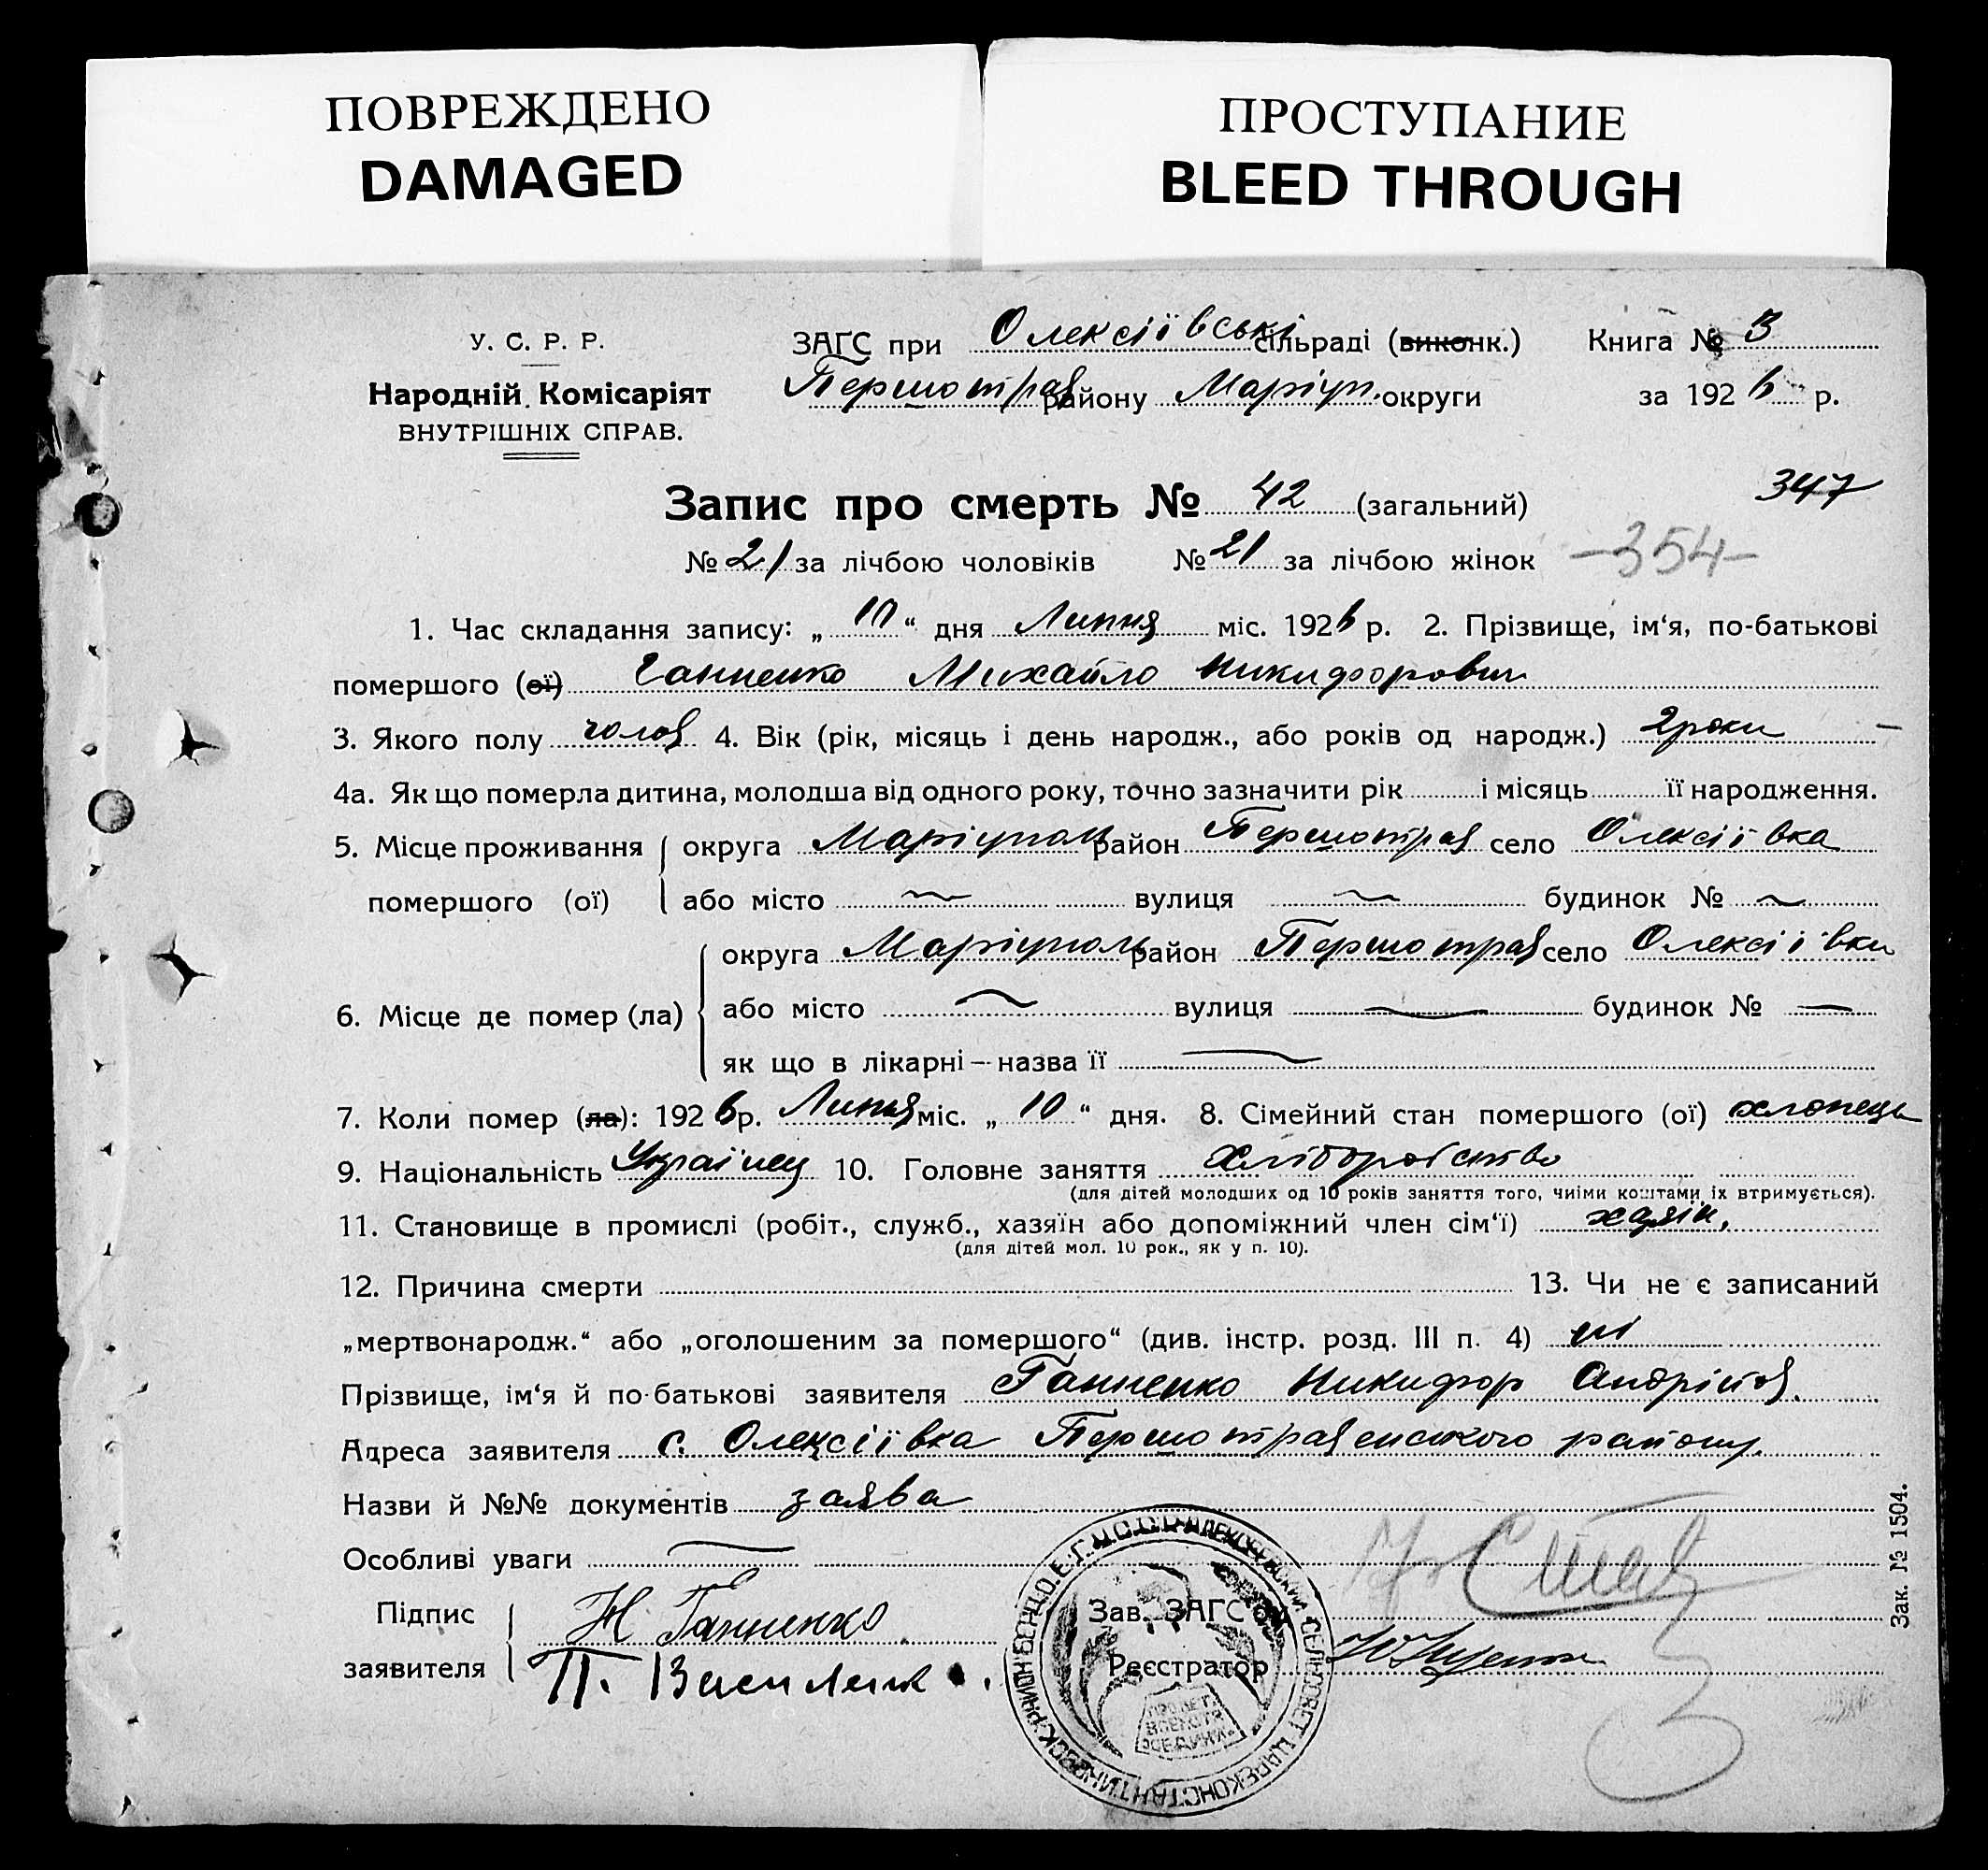 ПОВРЕЖДЕНО
DAMAGED
ПРОСТУПАНИЕ
BLEED THROUGH
У. С. Р. Р.
Народній Комісаріят
ВНУТРІШНІХ СПРАВ.
ЗАГС при Олексіївські сільраді (виконк.) Книга № 3
Першотрав району Маріуп. округи за 1926 р.
Запис про смерть № 42 (загальний) 347
№ 21 за лічбою чоловіків № 21 за лічбою жінок -354-
1. Час складання запису: „10“ дня Липня міс. 1926 р. 2. Прізвище, ім‘я, по-батькові
помершого (ої) Ганненко Михайло Никифорович
3. Якого полу чолов 4. Вік (рік, місяць і день народж., або років од народж.) 2 роки —
4а. Як що померла дитина, молодша від одного року, точно зазначити рік і місяць її народження.
5. Місце проживання помершого (ої) округа Маріуполь район Першотрав село Олексіївка
або місто вулиця будинок №
6. Місце де помер (ла) округа Маріуполь район Першотрав село Олексіївки
або місто вулиця будинок № —
як що в лікарні — назва її
7. Коли помер (ла): 1926 р. Липня міс. „10“ дня. 8. Сімейний стан помершого (ої) хлопець
9. Національність Українец 10. Головне заняття Хліборобство
(для дітей молодших од 10 років заняття того, чиїми коштами їх втримується).
11. Становище в промислі (робіт., служб., хазяїн або допоміжний член сім‘ї) хазяін.
(для дітей мол. 10 рок., як у п. 10).
12. Причина смерти 13. Чи не є записаний
„мертвонародж.“ або „оголошеним за помершого“ (див. інстр. розд. III п. 4) ні
Прізвище, ім‘я й по-батькові заявителя Ганненко Никифор Андрійов.
Адреса заявителя с. Олексіївка Першотравенського району.
Назви й №№ документів заява
Особливі уваги
Підпис заявителя Н Ганненко
П. Василенко.
Зав. ЗАГС‘ом
Реєстратор
Зак. № 1504.